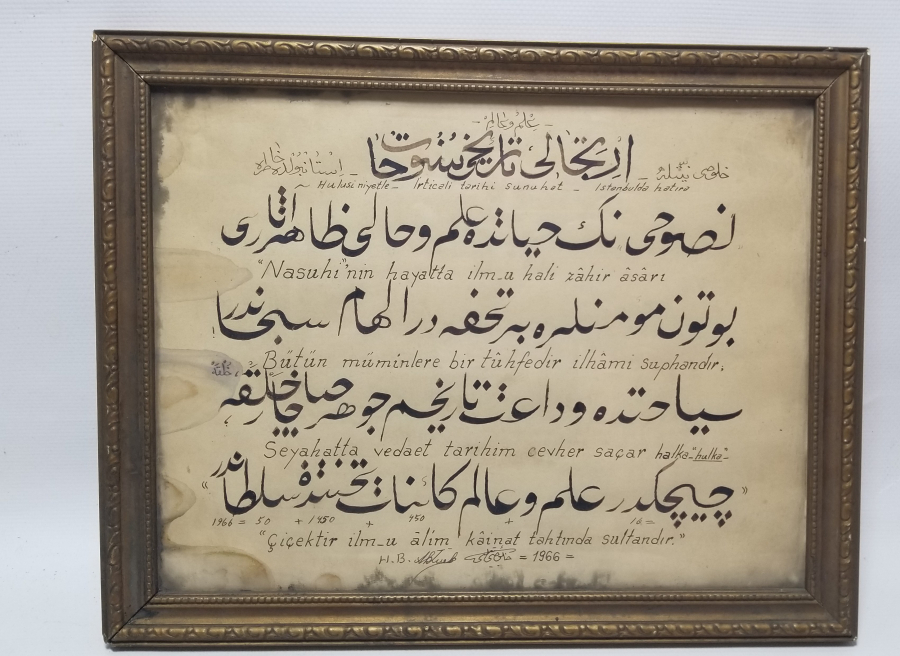 - علم و عالم -
خلوصی نیتله - ارتجالی تاریخی سنوحات - استانبولده خاطره
~ Hulusi niyetle - İrticali tarihi sunuhat - İstanbulda hatıra
نصوحی نك حیاتده علم و حالی ظاهر آثاری
"Nasuhi"nin hayatta ilm-u hali zâhir âsârı
بوتون مومنلره بر تحفه در الهام سبحاندر
Bütün müminlere bir tûhfedir ilhâmi suphandır;
سیاحتده وداعت تاریخم جوهر صاچار خلقه
Seyahatta vedaet tarihim cevher saçar halka-"hulka"-
« چیچكدر علم و عالم كائنات تختنده سلطاندر »
1966 = 50 + 1450 + 450 + 16 =
"Çiçektir ilm-u âlim kâinat tahtında sultandır."
H.B. = 1966 =